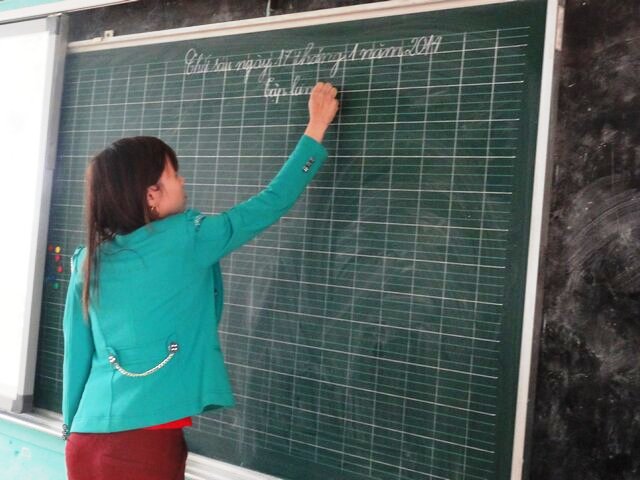 Thứ sáu ngày 17 tháng 1 năm 2014
Tập làm